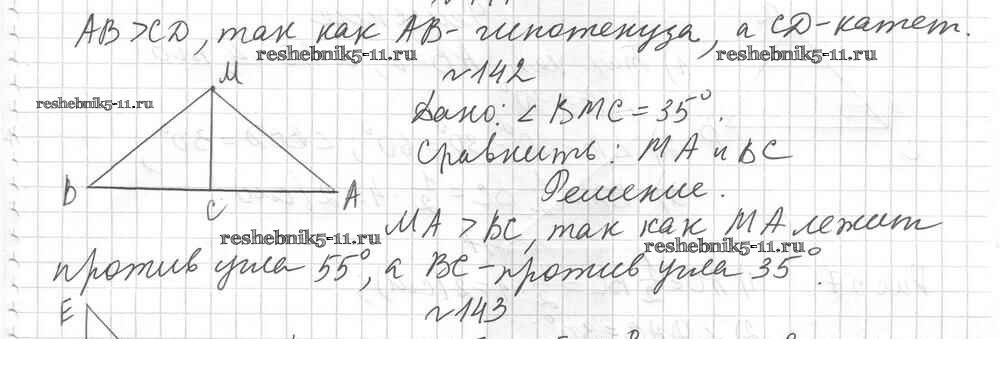 AB > CD, так как AB - гипотенуза, а CD - катет.
reshebnik5-11.ru
reshebnik5-11.ru
№142
M
reshebnik5-11.ru
Дано: ∠ BMC = 35°.
Сравнить: MA и BC
B
C
A
Решение.
MA > BC, так как MA лежит
reshebnik5-11.ru
reshebnik5-11.ru
против угла 55°, а BC - против угла 35°.
E
№143